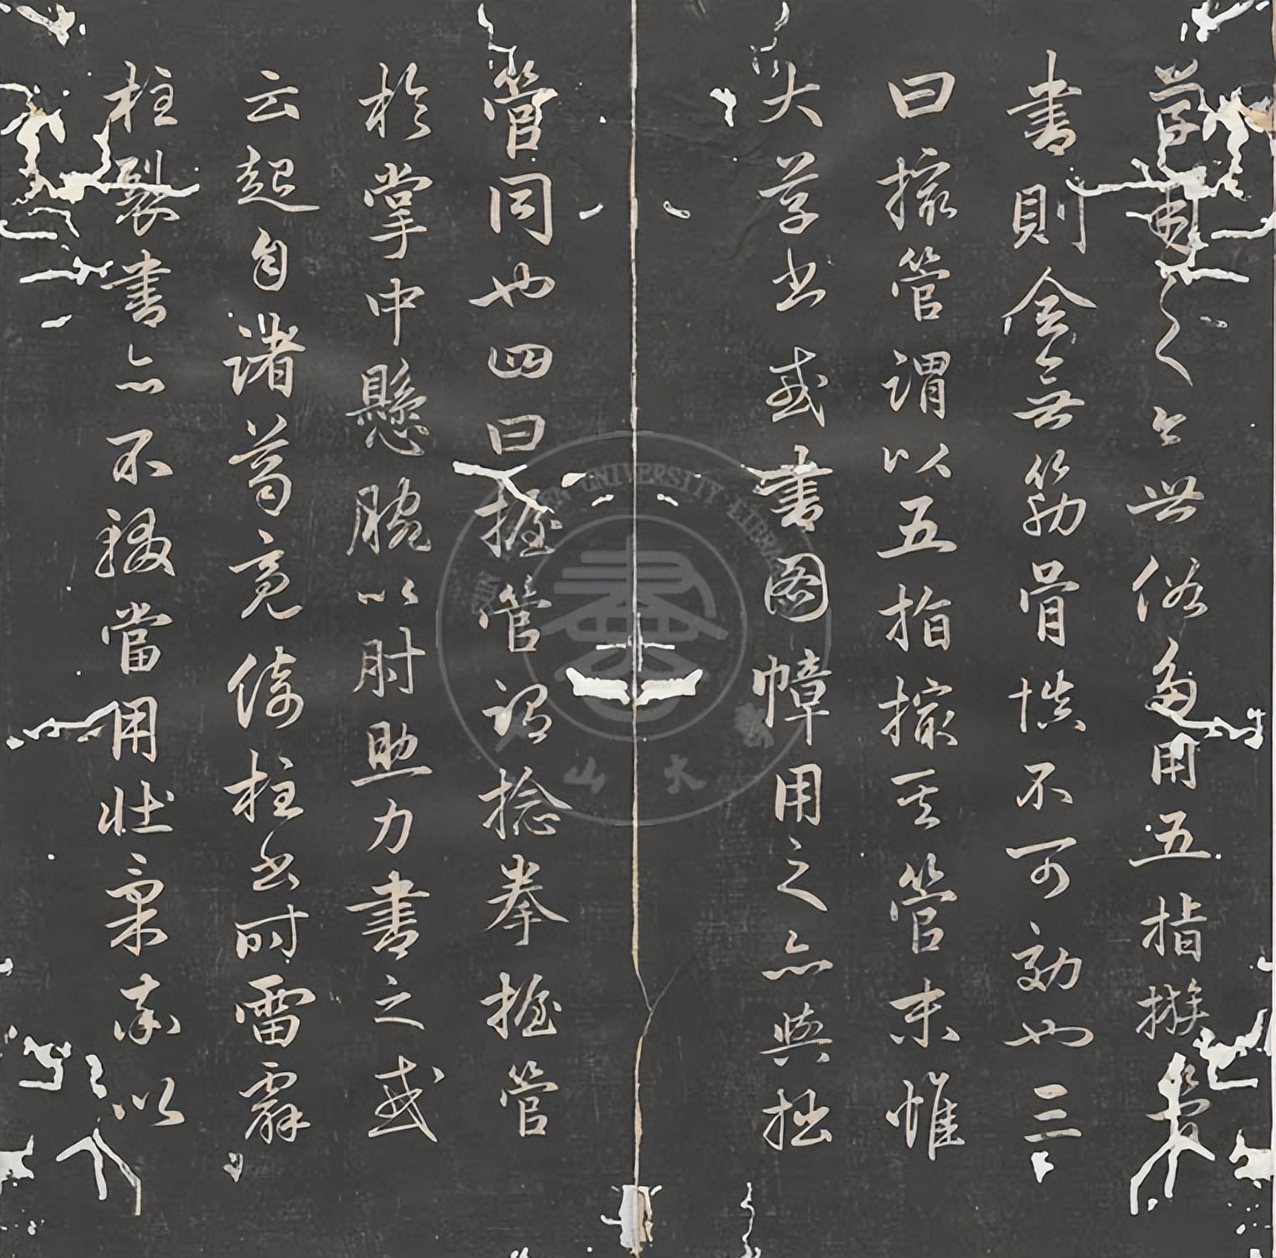 草用之今世俗多用五指管
書則全無筋骨慎不可效也三
曰撮管謂以五指撮其管末惟
大草書或書圖幛用之亦與拙
管同也四曰握管謂捻拳握管
於掌中懸腕以肘助力書之或
云起自諸葛竟倚柱書時雷霹
柱裂書亦不輟當用壯氣率以
UNIVERSITY LIBRA
山大